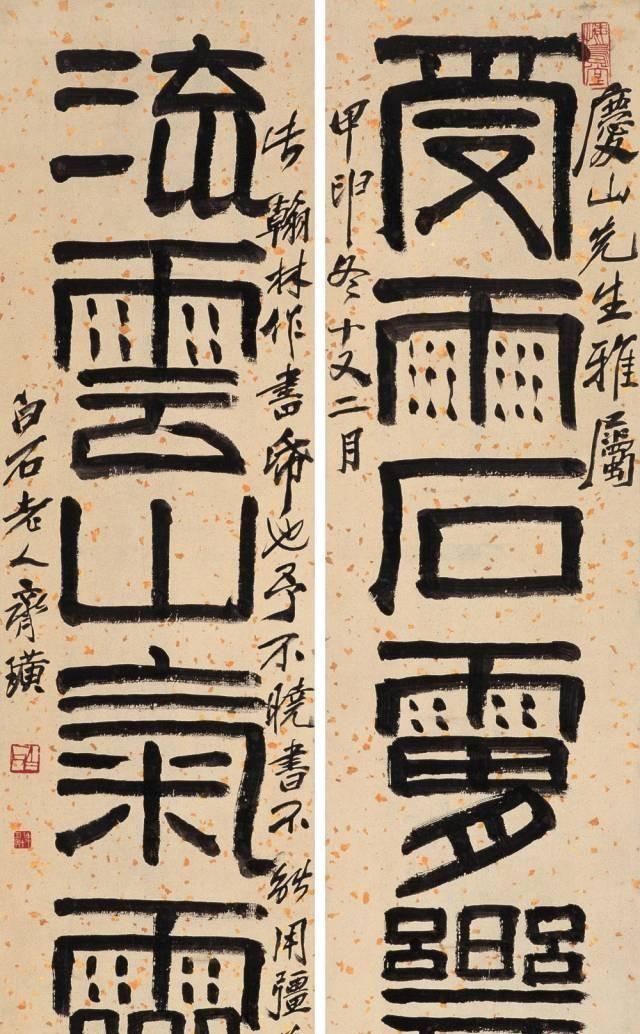 慶山先生雅屬
受雨石
甲申冬十又二月
去翰林作書幣也予不曉書不能用彊
流雲山氣靈
白石老人齊璜